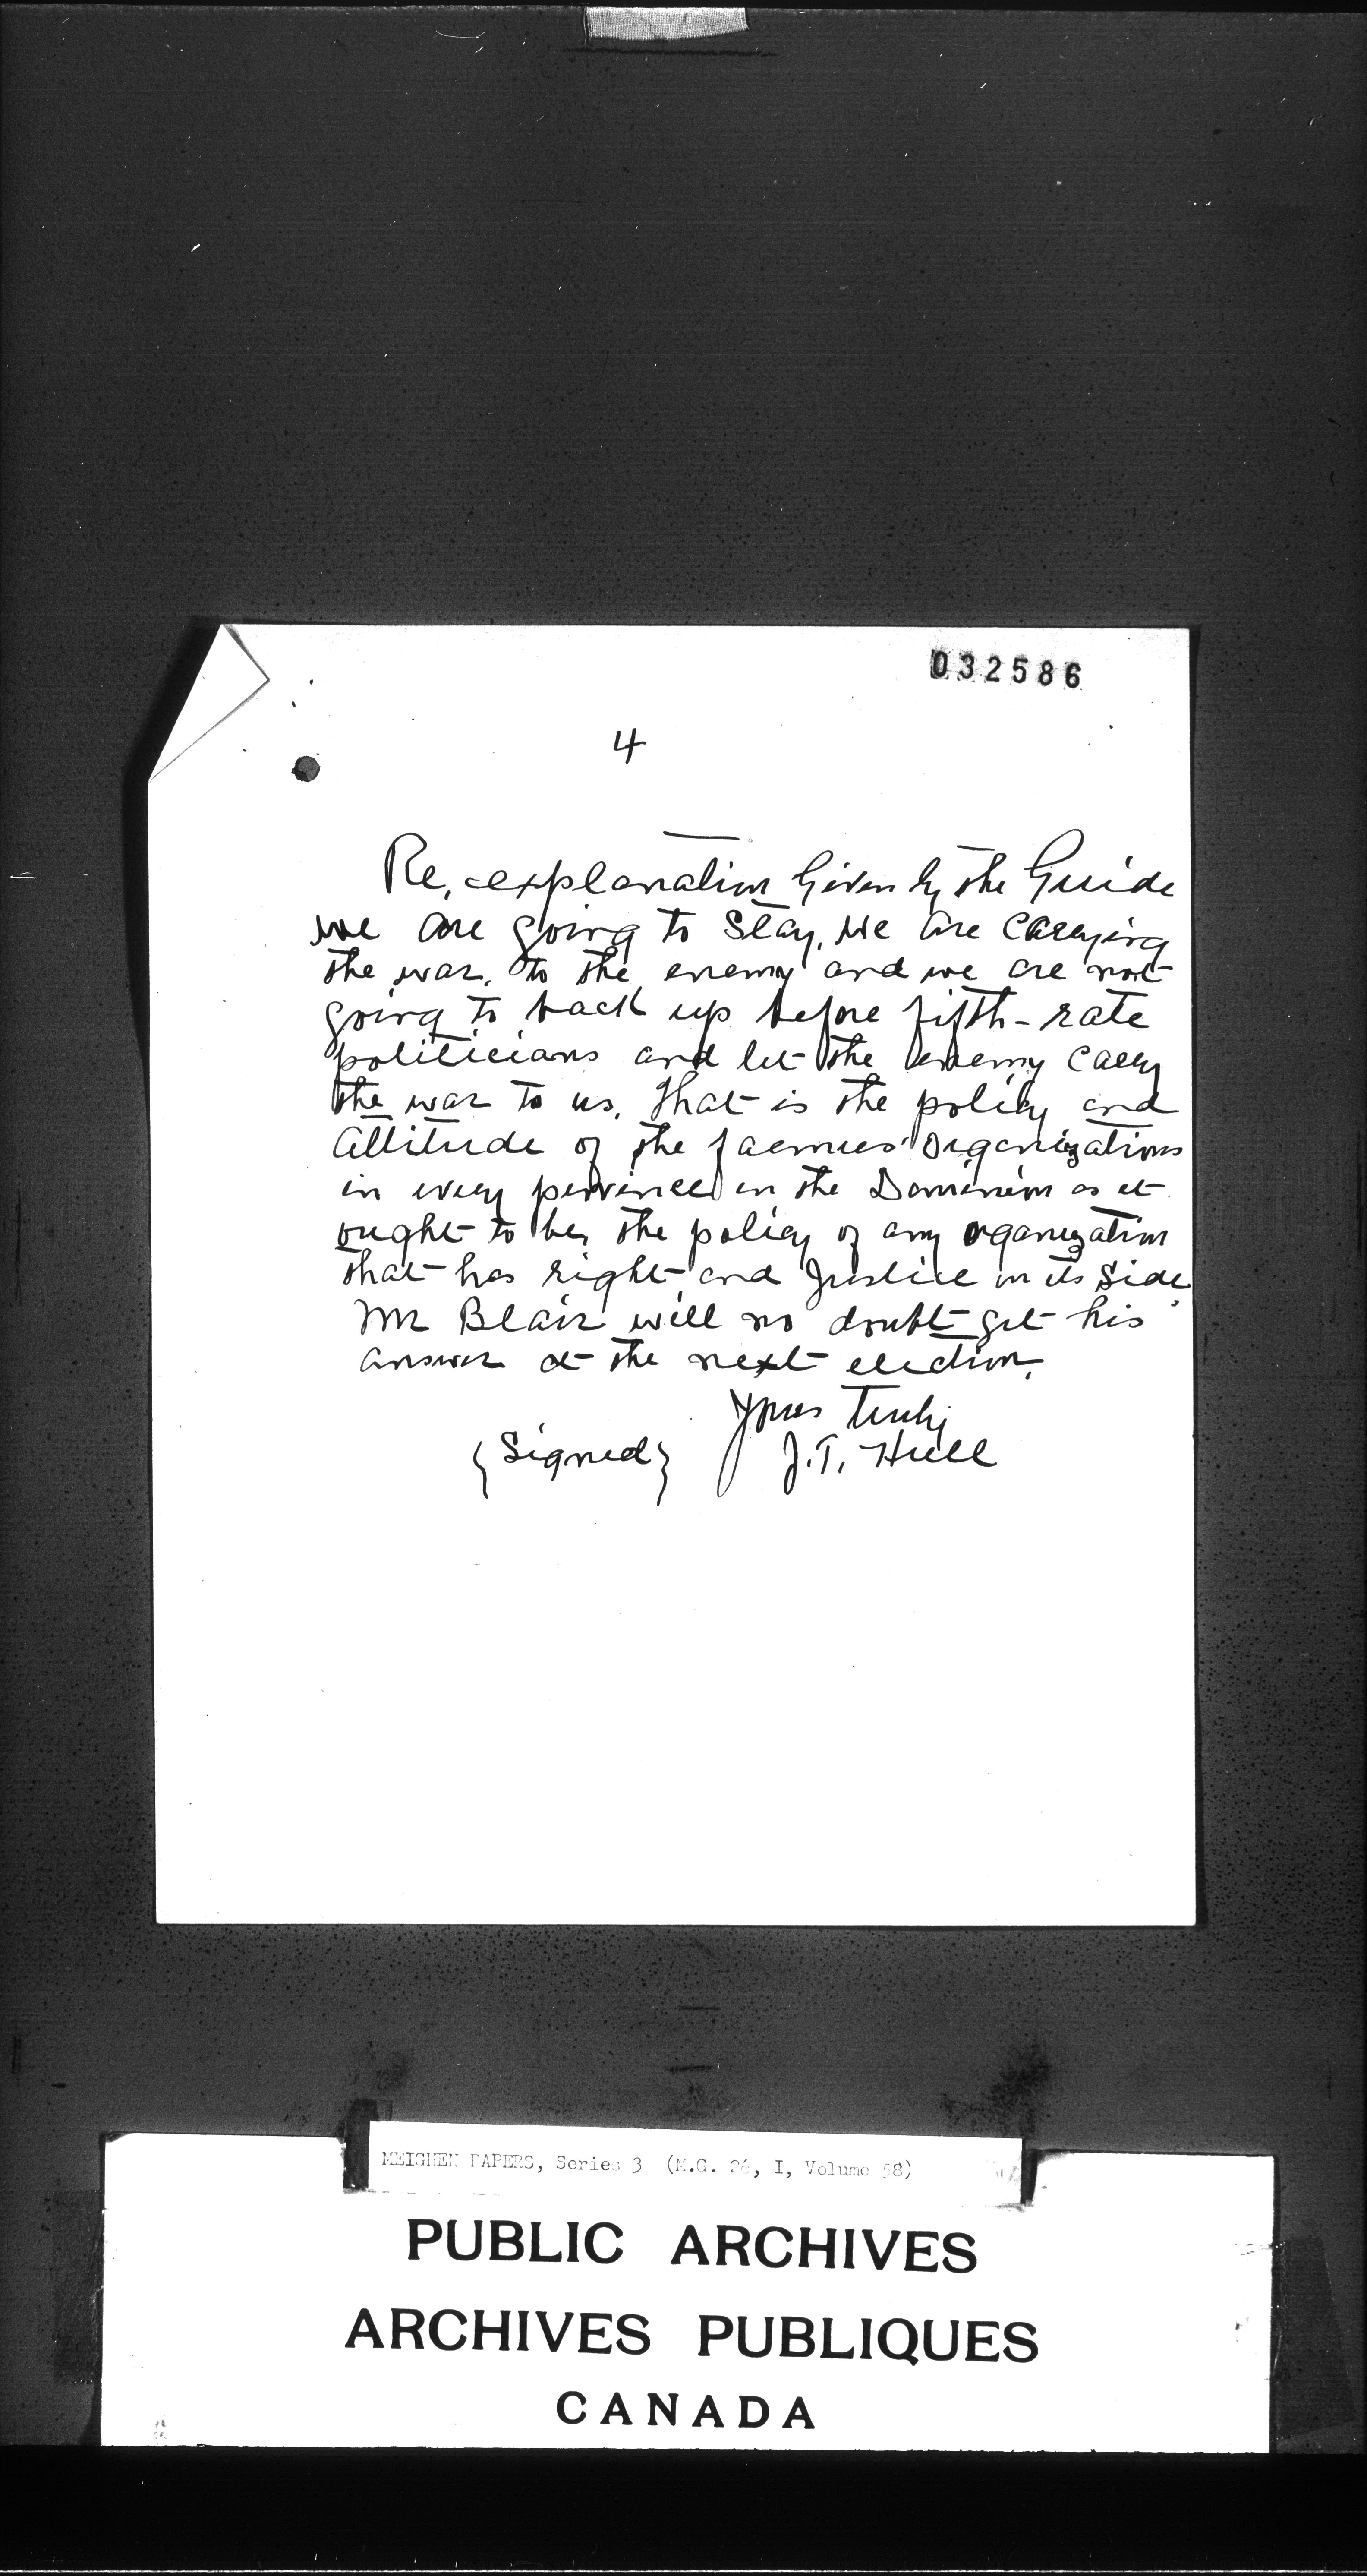 032586
4
Re, explanation Given by the Guide
we are going to Stay, We are Carrying
the war, to the enemy and we are not
going to back up before fifth-rate
politicians and let the enemy Carry
the war to us, that is the policy and
attitude of the farmers' Organizations
in every province in the Dominion as it
ought to be, the policy of any organization
that has right and Justice on its Side,
Mr Blair will no doubt get his
answer at the next election,
Yours Truly
{Signed} J.T. Hull
MEIGHEN PAPERS, Series 3 (M.G. 26, I, Volume 58)
PUBLIC ARCHIVES
ARCHIVES PUBLIQUES
CANADA